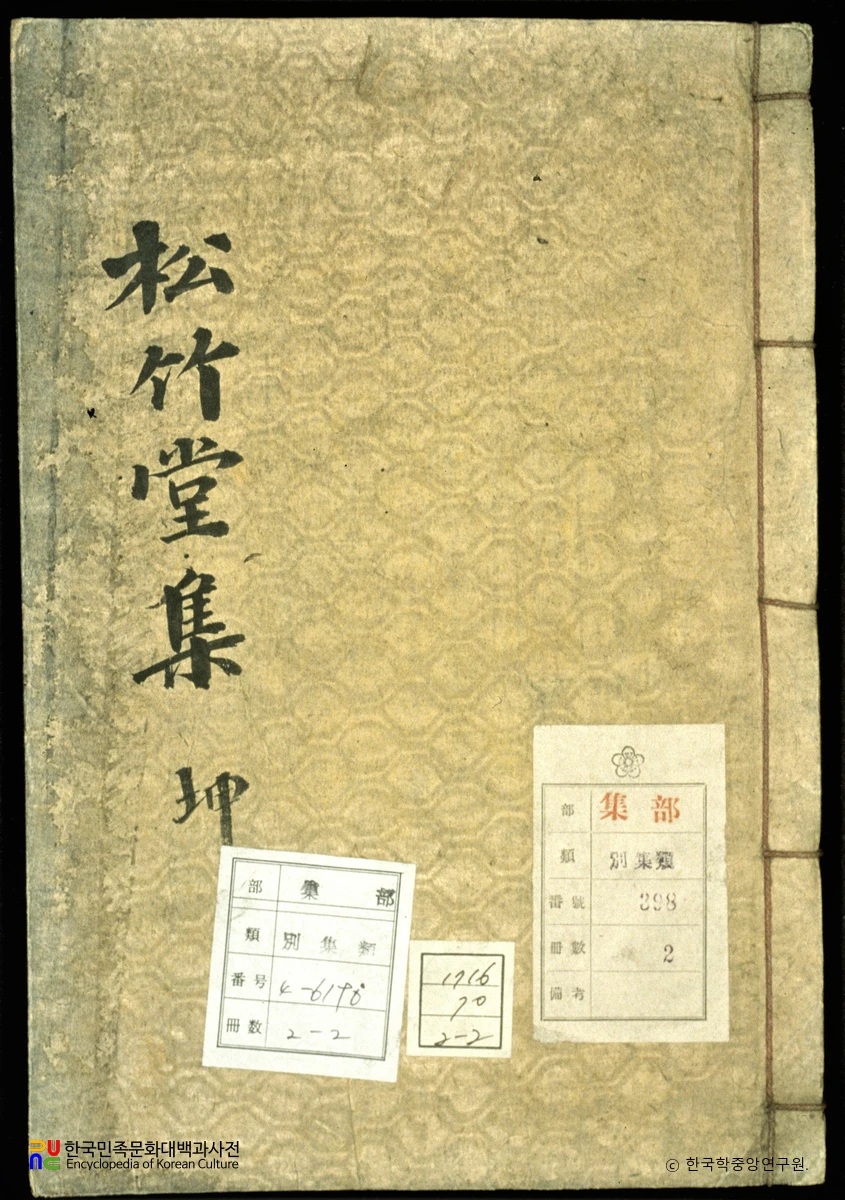 松竹堂集 坤
部 集部
類 別集類
番号 4-6198
冊数 2-2
1716
70
2-2
部 集部
類 別集類
番號 398
冊數 2
備考
한국민족문화대백과사전
Encyclopedia of Korean Culture
© 한국학중앙연구원.